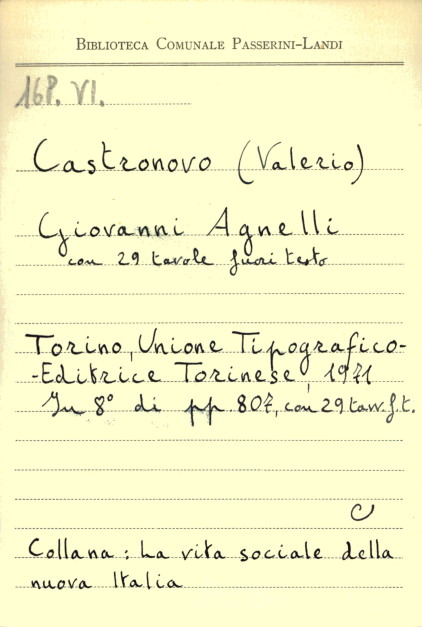 BIBLIOTECA COMUNALE PASSERINI-LANDI
16P. VI.
Castronovo (Valerio)
Giovanni Agnelli
con 29 tavole fuori testo
Torino, Unione Tipografico-
-Editrice Torinese, 1971
In 8° di pp. 807, con 29 tavv. f.t.
C
Collana: La vita sociale della
nuova Italia